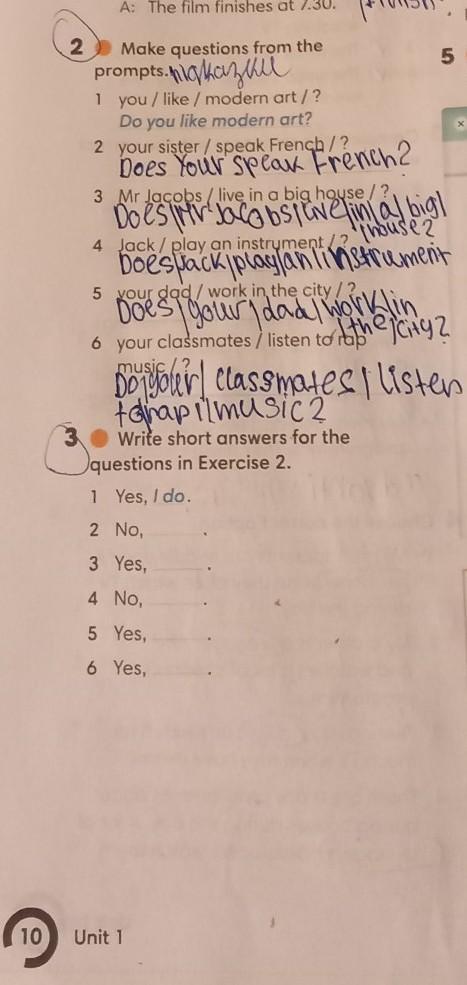 A: The film finishes at 7.30.
2 Make questions from the
prompts.
5
1 you / like / modern art / ?
Do you like modern art?
2 your sister / speak French / ?
Does Your speak French?
3 Mr Jacobs / live in a big house / ?
Does|Mr Jacobs|live|in|a|big|
house?
4 Jack / play an instrument / ?
Does|Jack|play|an|instrument
5 your dad / work in the city / ?
Does|your|dad|work|in
|the|city?
6 your classmates / listen to rap
music / ?
Do|your| classmates | listen
to|rap|music?
3 Write short answers for the
questions in Exercise 2.
1 Yes, I do.
2 No, .
3 Yes, .
4 No, .
5 Yes, .
6 Yes, .
10 Unit 1